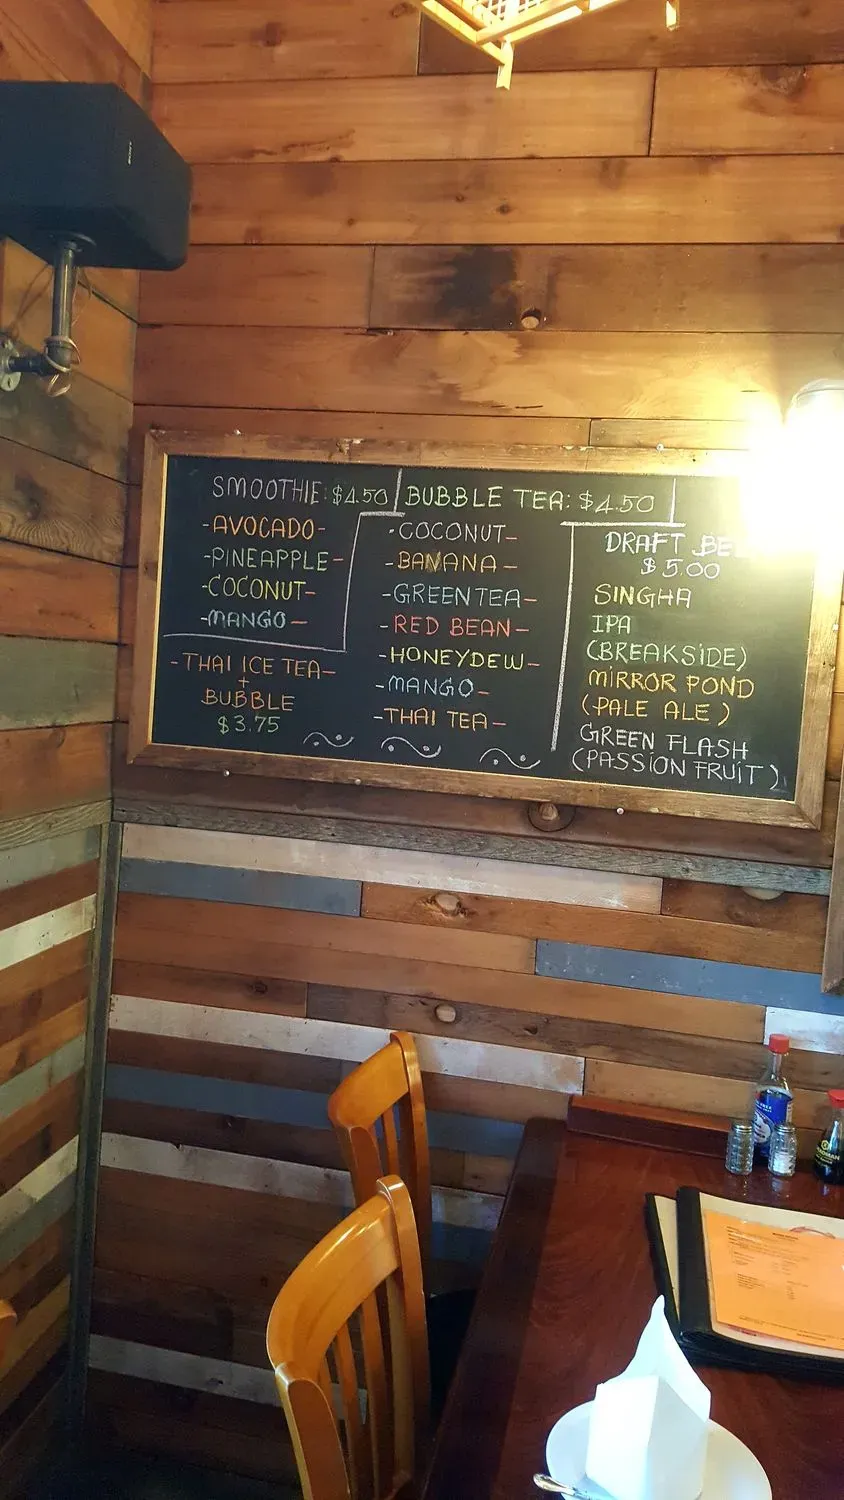 SONY
SMOOTHIE: $4.50
-AVOCADO-
-PINEAPPLE-
-COCONUT-
-MANGO-
-THAI ICE TEA-
+
BUBBLE
$3.75
BUBBLE TEA: $4.50
-COCONUT-
-BANANA-
-GREEN TEA-
-RED BEAN-
-HONEYDEW-
-MANGO-
-THAI TEA-
DRAFT BE
$5.00
SINGHA
IPA
(BREAKSIDE)
MIRROR POND
(PALE ALE)
GREEN FLASH
(PASSION FRUIT)